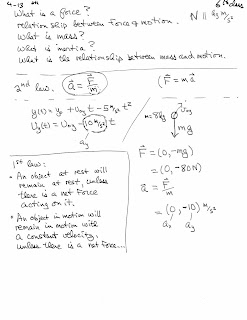 4-13
What is a force?
relationship between force & motion.
What is mass?
what is inertia?
what is the relationship between mass and motion.
2nd law.
a⃗ = F⃗/m
(F⃗ = m a⃗)
y(t) = y₀ + v₀y t − 5 m/s² t²
vy(t) = v₀y − (10 m/s²) t
ay
m = 8kg
v₀y
mg
F⃗ = (0, -mg)
= (0, -80N)
a⃗ = F⃗/m
= (0, -10) m/s²
ax ay
1st law:
• An object at rest will
remain at rest, unless
there is a net Force
acting on it.
• An object in motion will
remain in motion with
a constant velocity,
unless there is a net force...